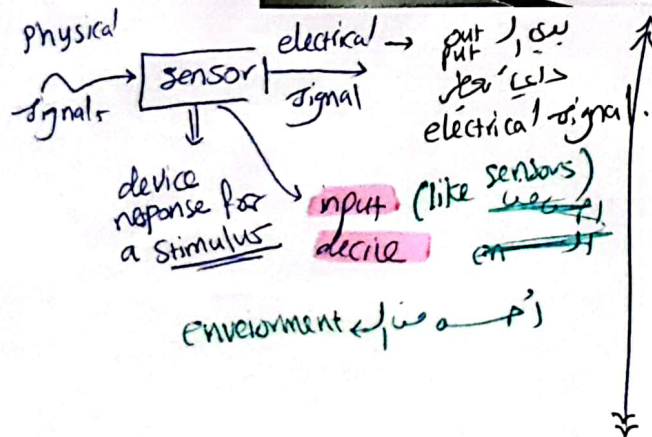 physical
signals
sensor
electrical
signal
→ out put
دائما
electrical signal.
device
response for
a stimulus
input (like sensors)
decive
enveiorment ←